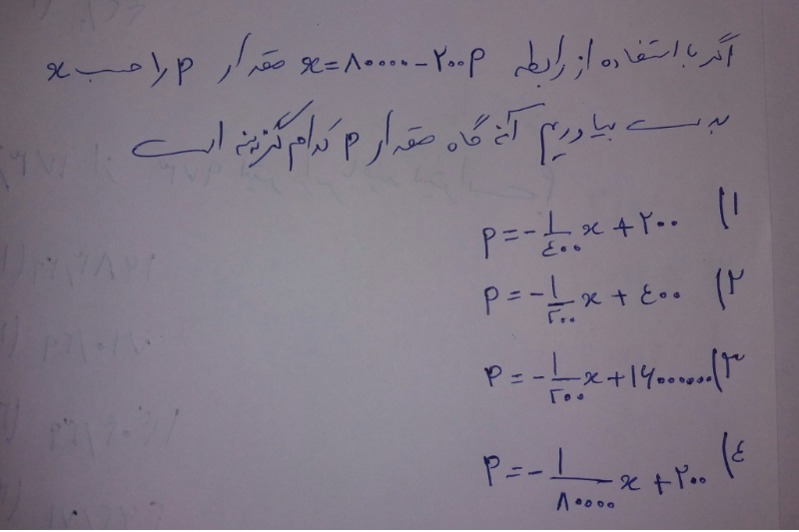 اگر با استفاده از رابطه x=۸۰۰۰۰-۲۰۰p مقدار p را حسب x
بدست بیاوریم آنگاه مقدار p کدام گزینه است
۱) p = -۱/۴۰۰ x + ۲۰۰
۲) p = -۱/۲۰۰ x + ۴۰۰
۳) p = -۱/۲۰۰ x + ۱۶۰۰۰۰۰۰
۴) p = -۱/۸۰۰۰۰ x + ۲۰۰